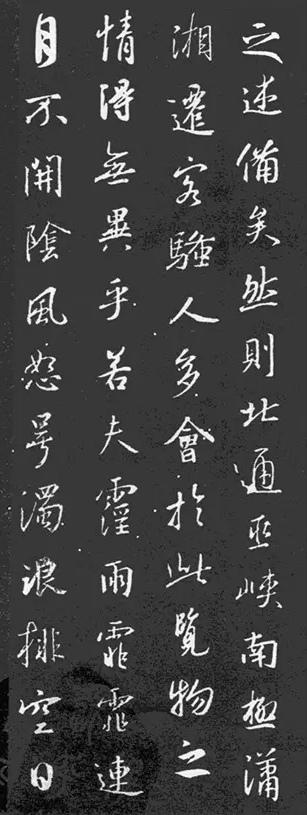 之述備矣然則北通巫峽南極瀟
湘遷客騷人多會於此覽物之
情得無異乎若夫霪雨霏霏連
月不開陰風怒号濁浪排空日